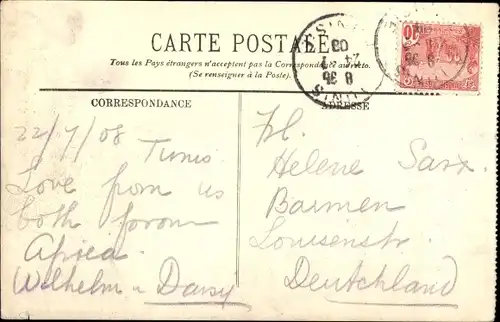 CARTE POSTALE
Tous les Pays étrangers n'acceptent pas la Correspondance au recto.
(Se renseigner à la Poste).
CORRESPONDANCE
ADRESSE
22/7/08
Tunis
Love from us
both from
Africa.
Wilhelm u Daisy
Frl.
Helene Sarx
Barmen
Louisenstr
Deutschland
10
TUNIS
8 35
24 -7
08